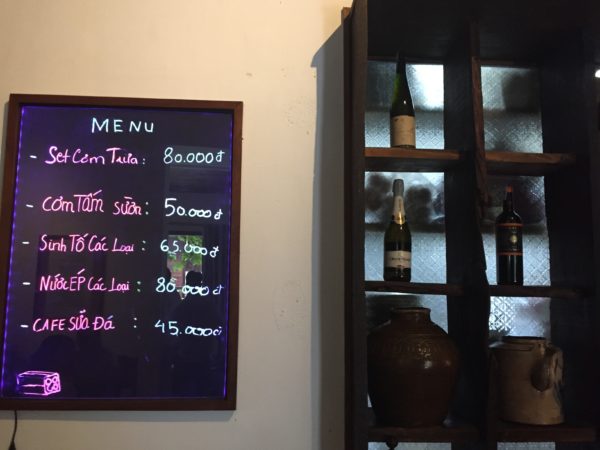 MENU
- Set Cơm Trưa: 80.000đ
- CƠM TẤM SƯỜN: 50.000đ
- Sinh Tố Các Loại: 65.000đ
- NƯỚC ÉP Các Loại: 80.000đ
- CAFE SỮA ĐÁ : 45.000đ